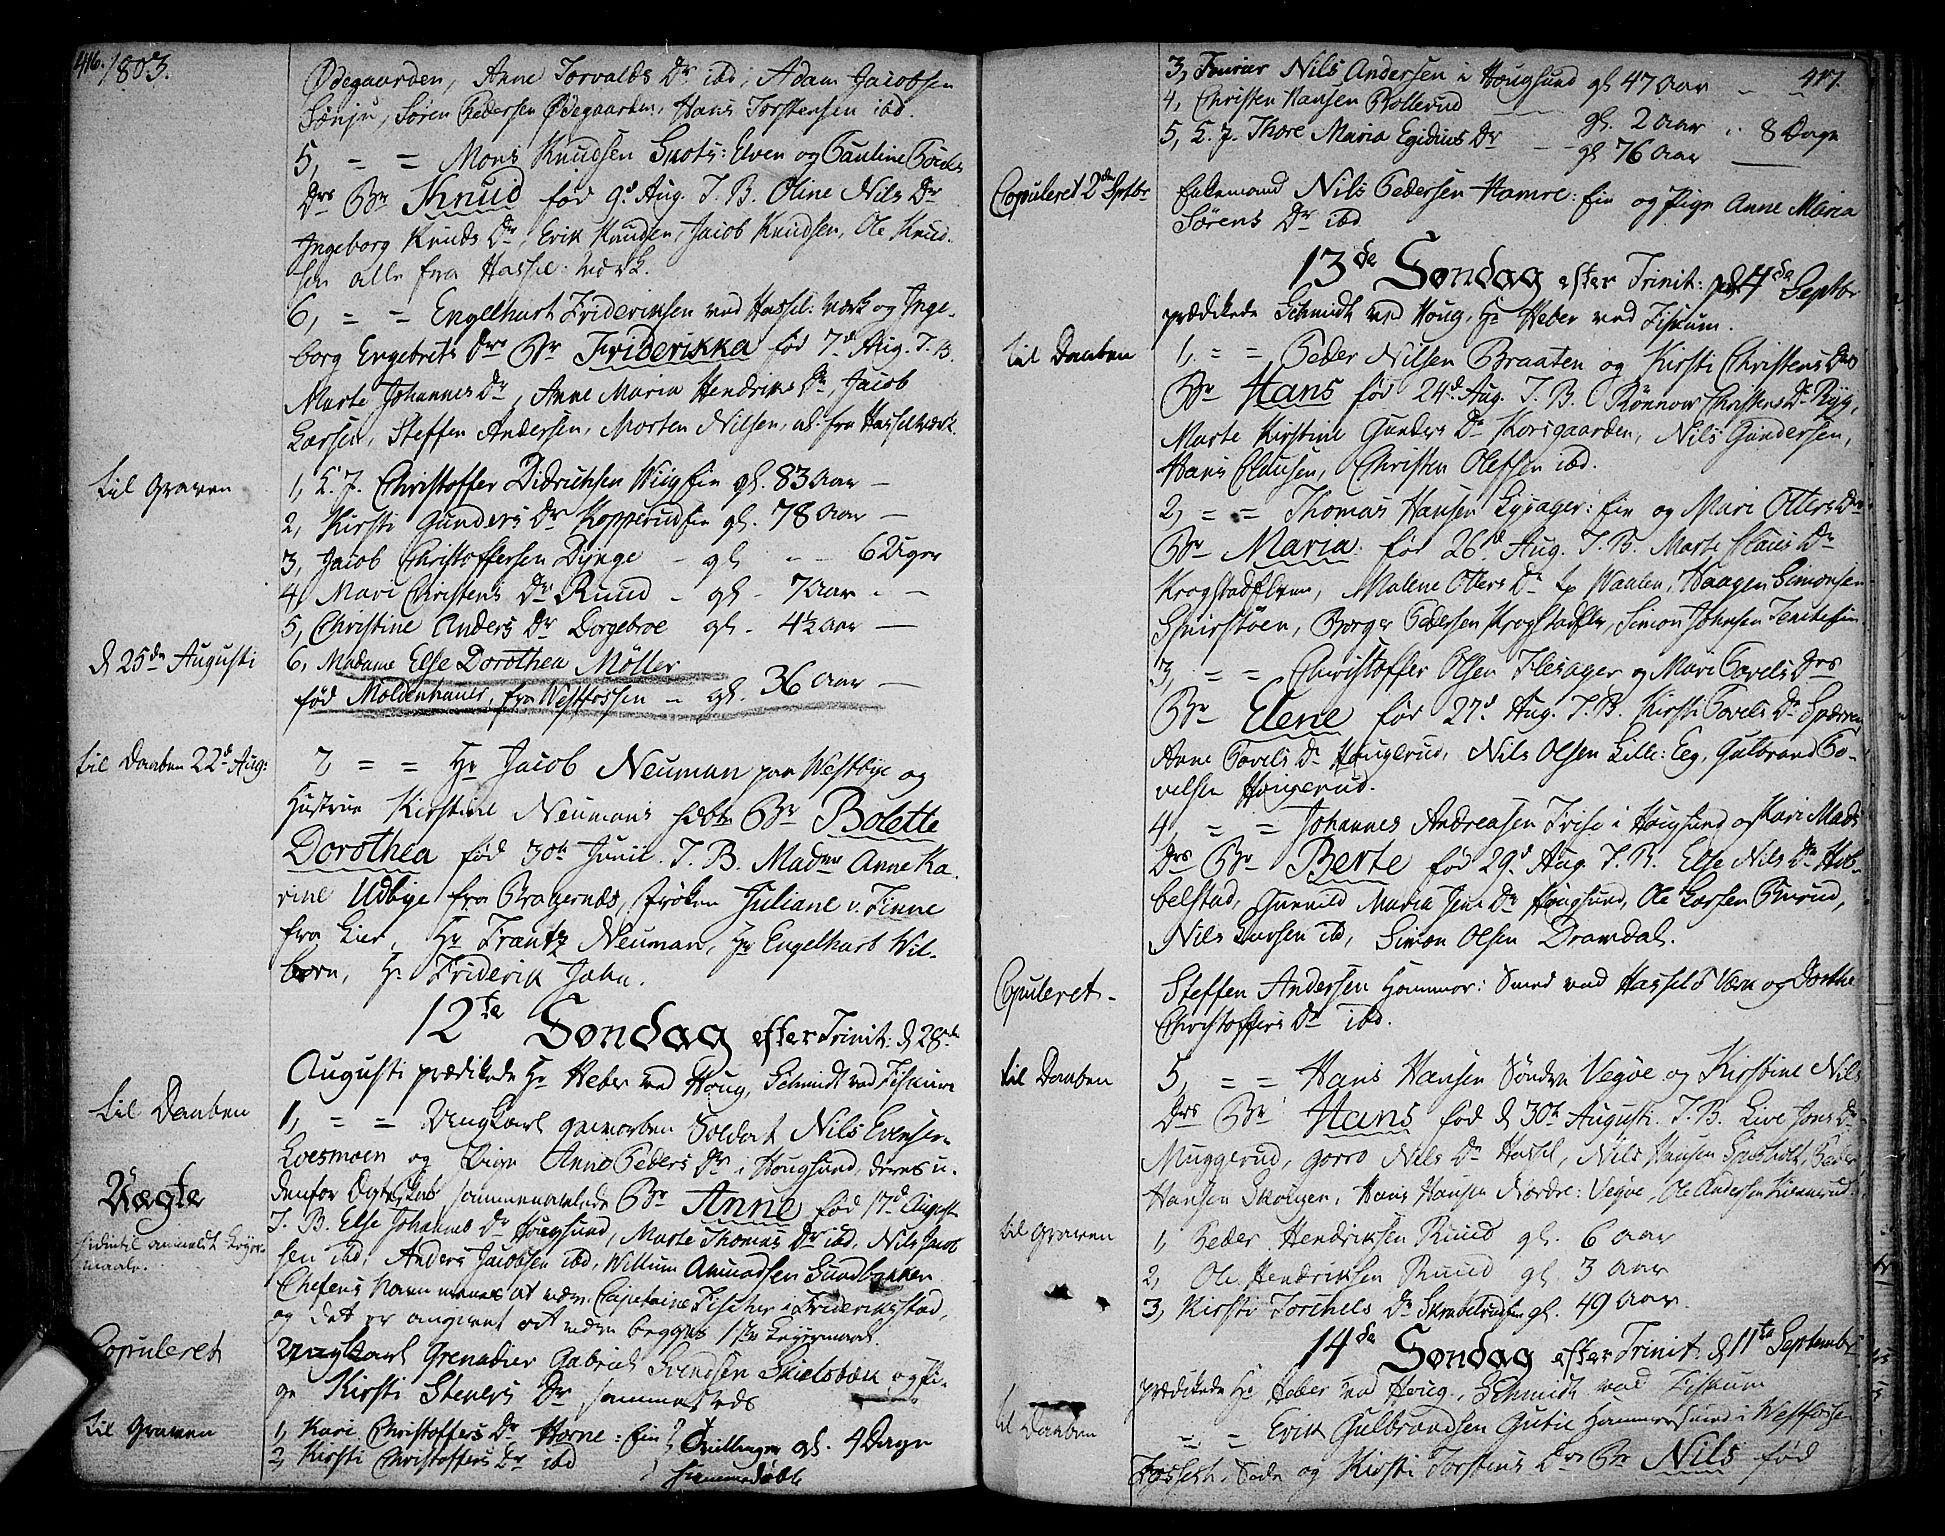 416. 1803.
Ødegaarden, Anne Torvalds Dr ibd, Adam Jacobsen
Sønju, Søren Pedersen Ødegaarden, Hans Torstensen ibd.
5, = = Mons Knudsen Skots: Elven og Pauline Povels
Drs Br Knud fød 9d Aug. T. B. Oline Nils Dr
Ingeborg Knuds Dr, Erik Knudsen, Jacob Knudsen, Ole Knud-
sen alle fra Hassel: Værk.
6, = = Engelhart Frideriksen ved Hassel: Værk og Inge-
borg Engebrets Drs Br Friderikka fød 7d Aug. T. B.
Marte Johannes Dr, Anne Maria Hendriks Dr, Jacob
Larsen, Steffen Andersen, Morten Nilsen, al. fra Hasselværk.
til Graven
1, L. J. Christoffer Didriksen Wiig Ein gl. 83 Aar —
2, Kirsti Gunders Dr Kopperud Ein gl. 78 Aar —
3, Jacob Christoffersen Dynge - gl - - 6 Uger
4, Mari Christens Dr Ruud - gl - 7 Aar - -
5, Christine Anders Dr Dorgebroe gl - 4½ Aar —
d 25de Augusti
6, Madame Else Dorothea Möller
fød Moldenhauer, fra Westfossen - gl. 36 Aar —
til Daaben 22d Aug:
7, = = Hr Jacob Neuman paa Westbye og
Hustrue Kirstine Neumans Br Bolette
Dorothea fød 30te Junii. T. B. Madme Anne Ka-
rine Udbye fra Bragernæs, Frøken Juliane v. Finne
fra Lier, Hr Frantz Neuman, Hr Engelhart Wil-
born, Hr Friderik Jahn.
12te Søndag efter Trinit: d 28de
Augusti prædikede Hr Heber ved Houg, Schmidt ved Fiskum
til Daaben
1, = = Ungkarl gevorben Soldat Nils Evensen
Loesmoen og Pigen Anne Peders Dr i Hougsund, deres u-
denfor Ægteskab sammenavlede Br Anne fød 17d August
Uægte
T. B. Else Johannes Dr Hougsund, Marte Thomas Dr ibd, Nils Jacob
sen ibd, Anders Jacobsen ibd, Willum Amundsen Sundbakken.
Chefens Navn menes at være Capitaine Fischer i Friderikstad,
og det er angivet at være begges 1ste Leyermaal.
Leyer-
maale.
Copuleret
Ungkarl Grenadier Gabriel Svendsen Skielsbæk og Pi-
ge Kirsti Steners Dr sammesteds
til Graven
1, Kari Christoffers Dr Horne: Ein } Tvillinger gl. 4 Dage
2, Kirsti Christoffers Dr ibd } hiemmedøbte
417.
3, Fourier Nils Andersen i Hougsund gl 47 Aar —
4, Christen Hansen Bollerud gl. 2 Aar 8 Dage
5, L. J. Thore Maria Egidius Dr - - gl 76 Aar —
Copuleret 2den Septbr
Enkemand Nils Pedersen Hamre: Ein og Pige Anne Maria
Sørens Dr ibd
13de Søndag efter Trinit: d 4de Septbr
prædikede Schmidt ved Houg, Hr Heber ved Fiskum.
til Daaben
1, = = Peder Nilsen Braaten og Kirsti Christens Drs
Br Hans fød 24d Aug. T. B. Rønnow Christens Dr Ryg,
Marte Kirstine Gunders Dr Korsgaarden, Nils Gundersen,
Hans Clausen, Christen Olefsen ibd.
2, = = Thomas Hansen Lysager: Ein og Mari Otters Drs
Br Maria fød 26d Aug. T. B. Marte Claus Dr
Krogstadelven, Malene Otters Dr Waalen, Haagen Simonsen
Spirstøen, Borger Pedersen Krogstadelv, Simon Johnsen
3, = = Christoffer Olsen Flesager og Mari Povels Drs
Br Elene fød 27d Aug. T. B. Kirsti Povels Dr
Anne Povels Dr Hougerud, Nils Olsen Lille: Eeg, Gulbrand Po-
velsen Hougerud.
4, = = Johannes Andreasen Frise i Hougsund og Kari Mads
Drs Br Berte fød 29d Aug. T. B. Else Nils Dr Hob-
belstad, Gunnild Maria Jens Dr Hougsund, Ole Larsen Burud,
Nils Larsen ibd, Simon Olsen Dramdal.
Copuleret -
Steffen Andersen Hammer: Smed ved Hassels Værk og Dorthe
Christoffers Dr ibd.
til Daaben
5, = = Hans Hansen Søndre Vegoe og Kirstine Nils
Drs Br Hans fød d 30te Augusti. T. B. Live Jons Dr
Muggerud, Gorro Nils Dr Hassel, Nils Hansen Peder
Hansen Skougen, Hans Hansen Nordre: Vegoe, Ole Andersen
til Graven
1, Peder Hendriksen Ruud gl. 6 Aar
2, Ole Hendriksen Ruud gl. 3 Aar
3, Kirsti Torchels Dr gl. 49 Aar.
14de Søndag efter Trinit. d 11te Septembr
prædikede Hr Heber ved Houg, Schmidt ved Fiskum
til Daaben
= = Erik Gulbrandsen Gutu Hammersmed i Westfossen
og Kirsti Torstens Drs Br Nils fød